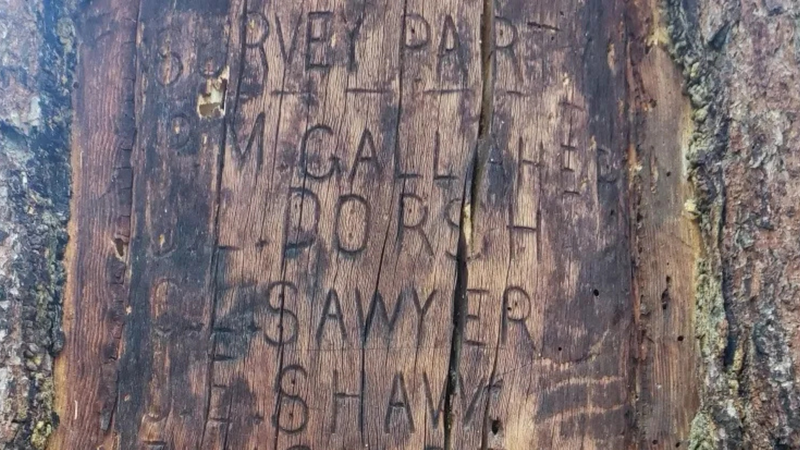 SURVEY PARTY
R M. GALLAHER
L. DORSH
C. E. SAWYER
E. SHAW